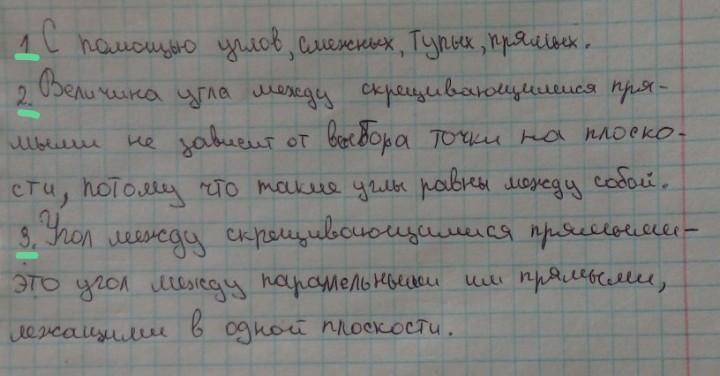 1. С помощью углов, смежных, тупых, прямых.
2. Величина угла между скрещивающимися пря-
мыми не зависит от выбора точки на плоско-
сти, потому что такие углы равны между собой.
3. Угол между скрещивающимися прямыми -
это угол между параллельными им прямыми,
лежащими в одной плоскости.